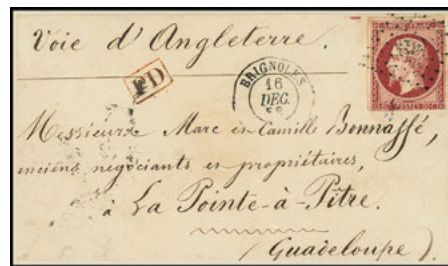 Voie d'Angleterre.
PD
BRIGNOLES
16
DEC.
58
Messieurs Marc et Camille Bonnaffé,
anciens négociants et propriétaires,
à La Pointe-à-Pitre.
(Guadeloupe).